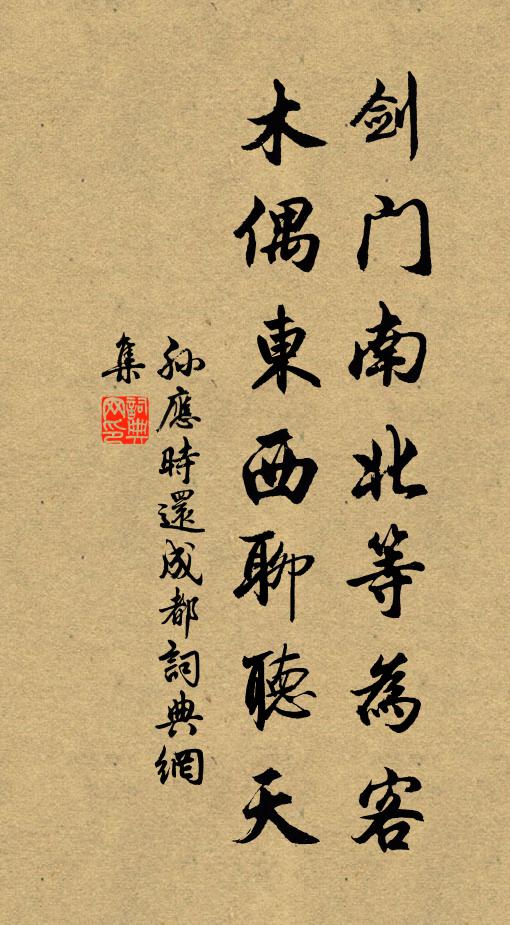 剑门南北等為客
木偶東西聊聽天
孙應時還成都詞典網
集
詞典網印